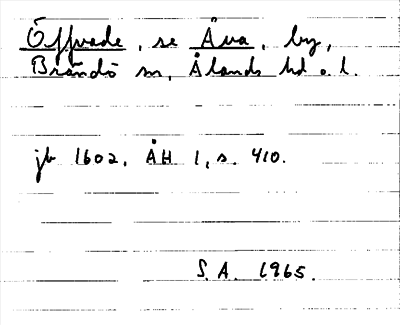 Öffvade, se Åva, by,
Brändö sn, Ålands hd o. l.
jb 1602, ÅH 1, s. 410.
S.A. 1965.